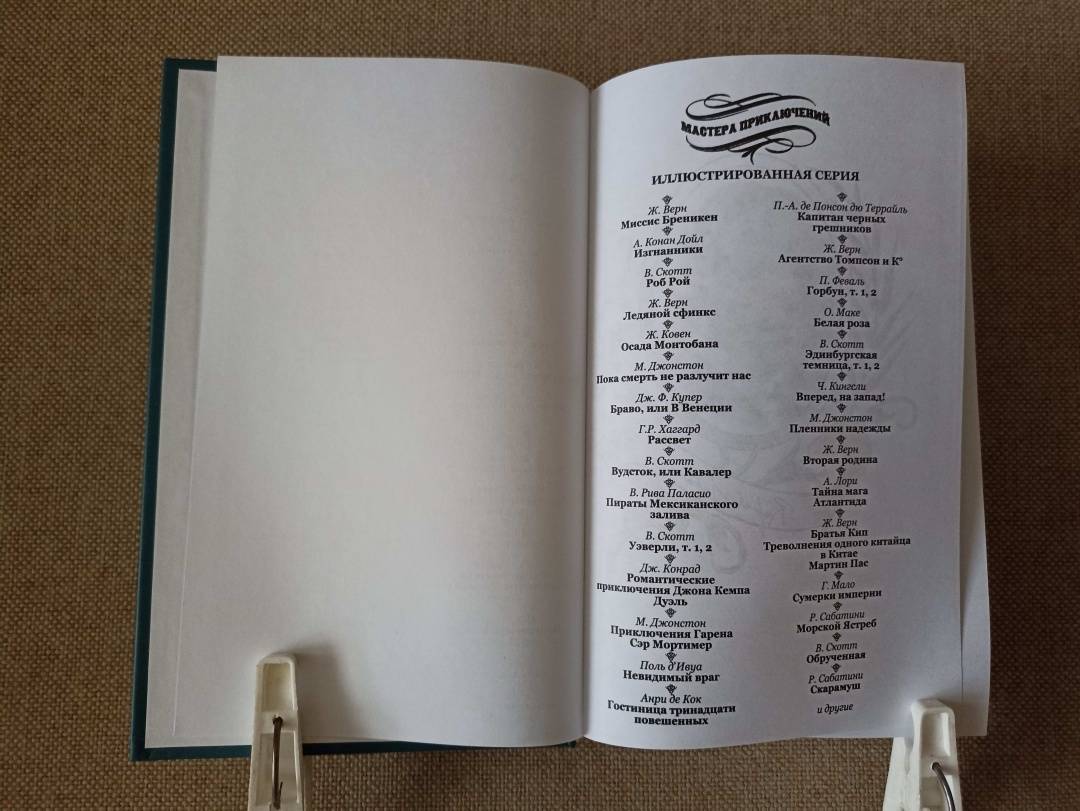 МАСТЕРА ПРИКЛЮЧЕНИЙ
ИЛЛЮСТРИРОВАННАЯ СЕРИЯ
Ж. Верн
Миссис Бреникен
А. Конан Дойл
Изгнанники
В. Скотт
Роб Рой
Ж. Верн
Ледяной сфинкс
Ж. Ковен
Осада Монтобана
М. Джонстон
Пока смерть не разлучит нас
Дж. Ф. Купер
Браво, или В Венеции
Г.Р. Хаггард
Рассвет
В. Скотт
Вудсток, или Кавалер
В. Рива Паласио
Пираты Мексиканского
залива
В. Скотт
Уэверли, т. 1, 2
Дж. Конрад
Романтические
приключения Джона Кемпа
Дуэль
М. Джонстон
Приключения Гарена
Сэр Мортимер
Поль д'Ивуа
Невидимый враг
Анри де Кок
Гостиница тринадцати
повешенных
П.-А. де Понсон дю Террайль
Капитан черных
грешников
Ж. Верн
Агентство Томпсон и К°
П. Феваль
Горбун, т. 1, 2
О. Маке
Белая роза
В. Скотт
Эдинбургская
темница, т. 1, 2
Ч. Кингсли
Вперед, на запад!
М. Джонстон
Пленники надежды
Ж. Верн
Вторая родина
А. Лори
Тайна мага
Атлантида
Ж. Верн
Братья Кип
Треволнения одного китайца
в Китае
Мартин Пас
Г. Мало
Сумерки империи
Р. Сабатини
Морской Ястреб
В. Скотт
Обрученная
Р. Сабатини
Скарамуш
и другие